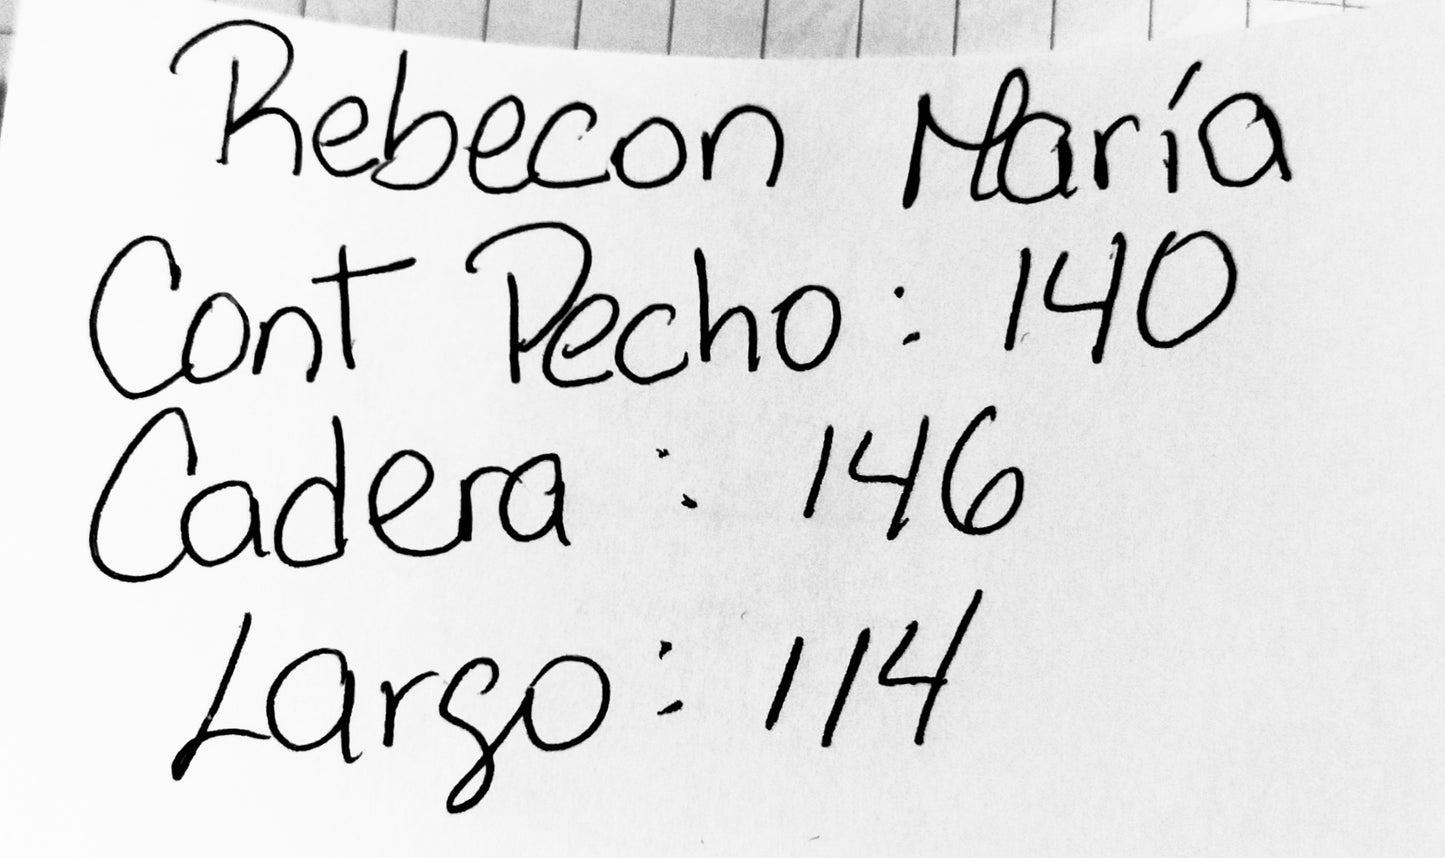 Rebecon María
Cont Pecho: 140
Cadera: 146
Largo: 114